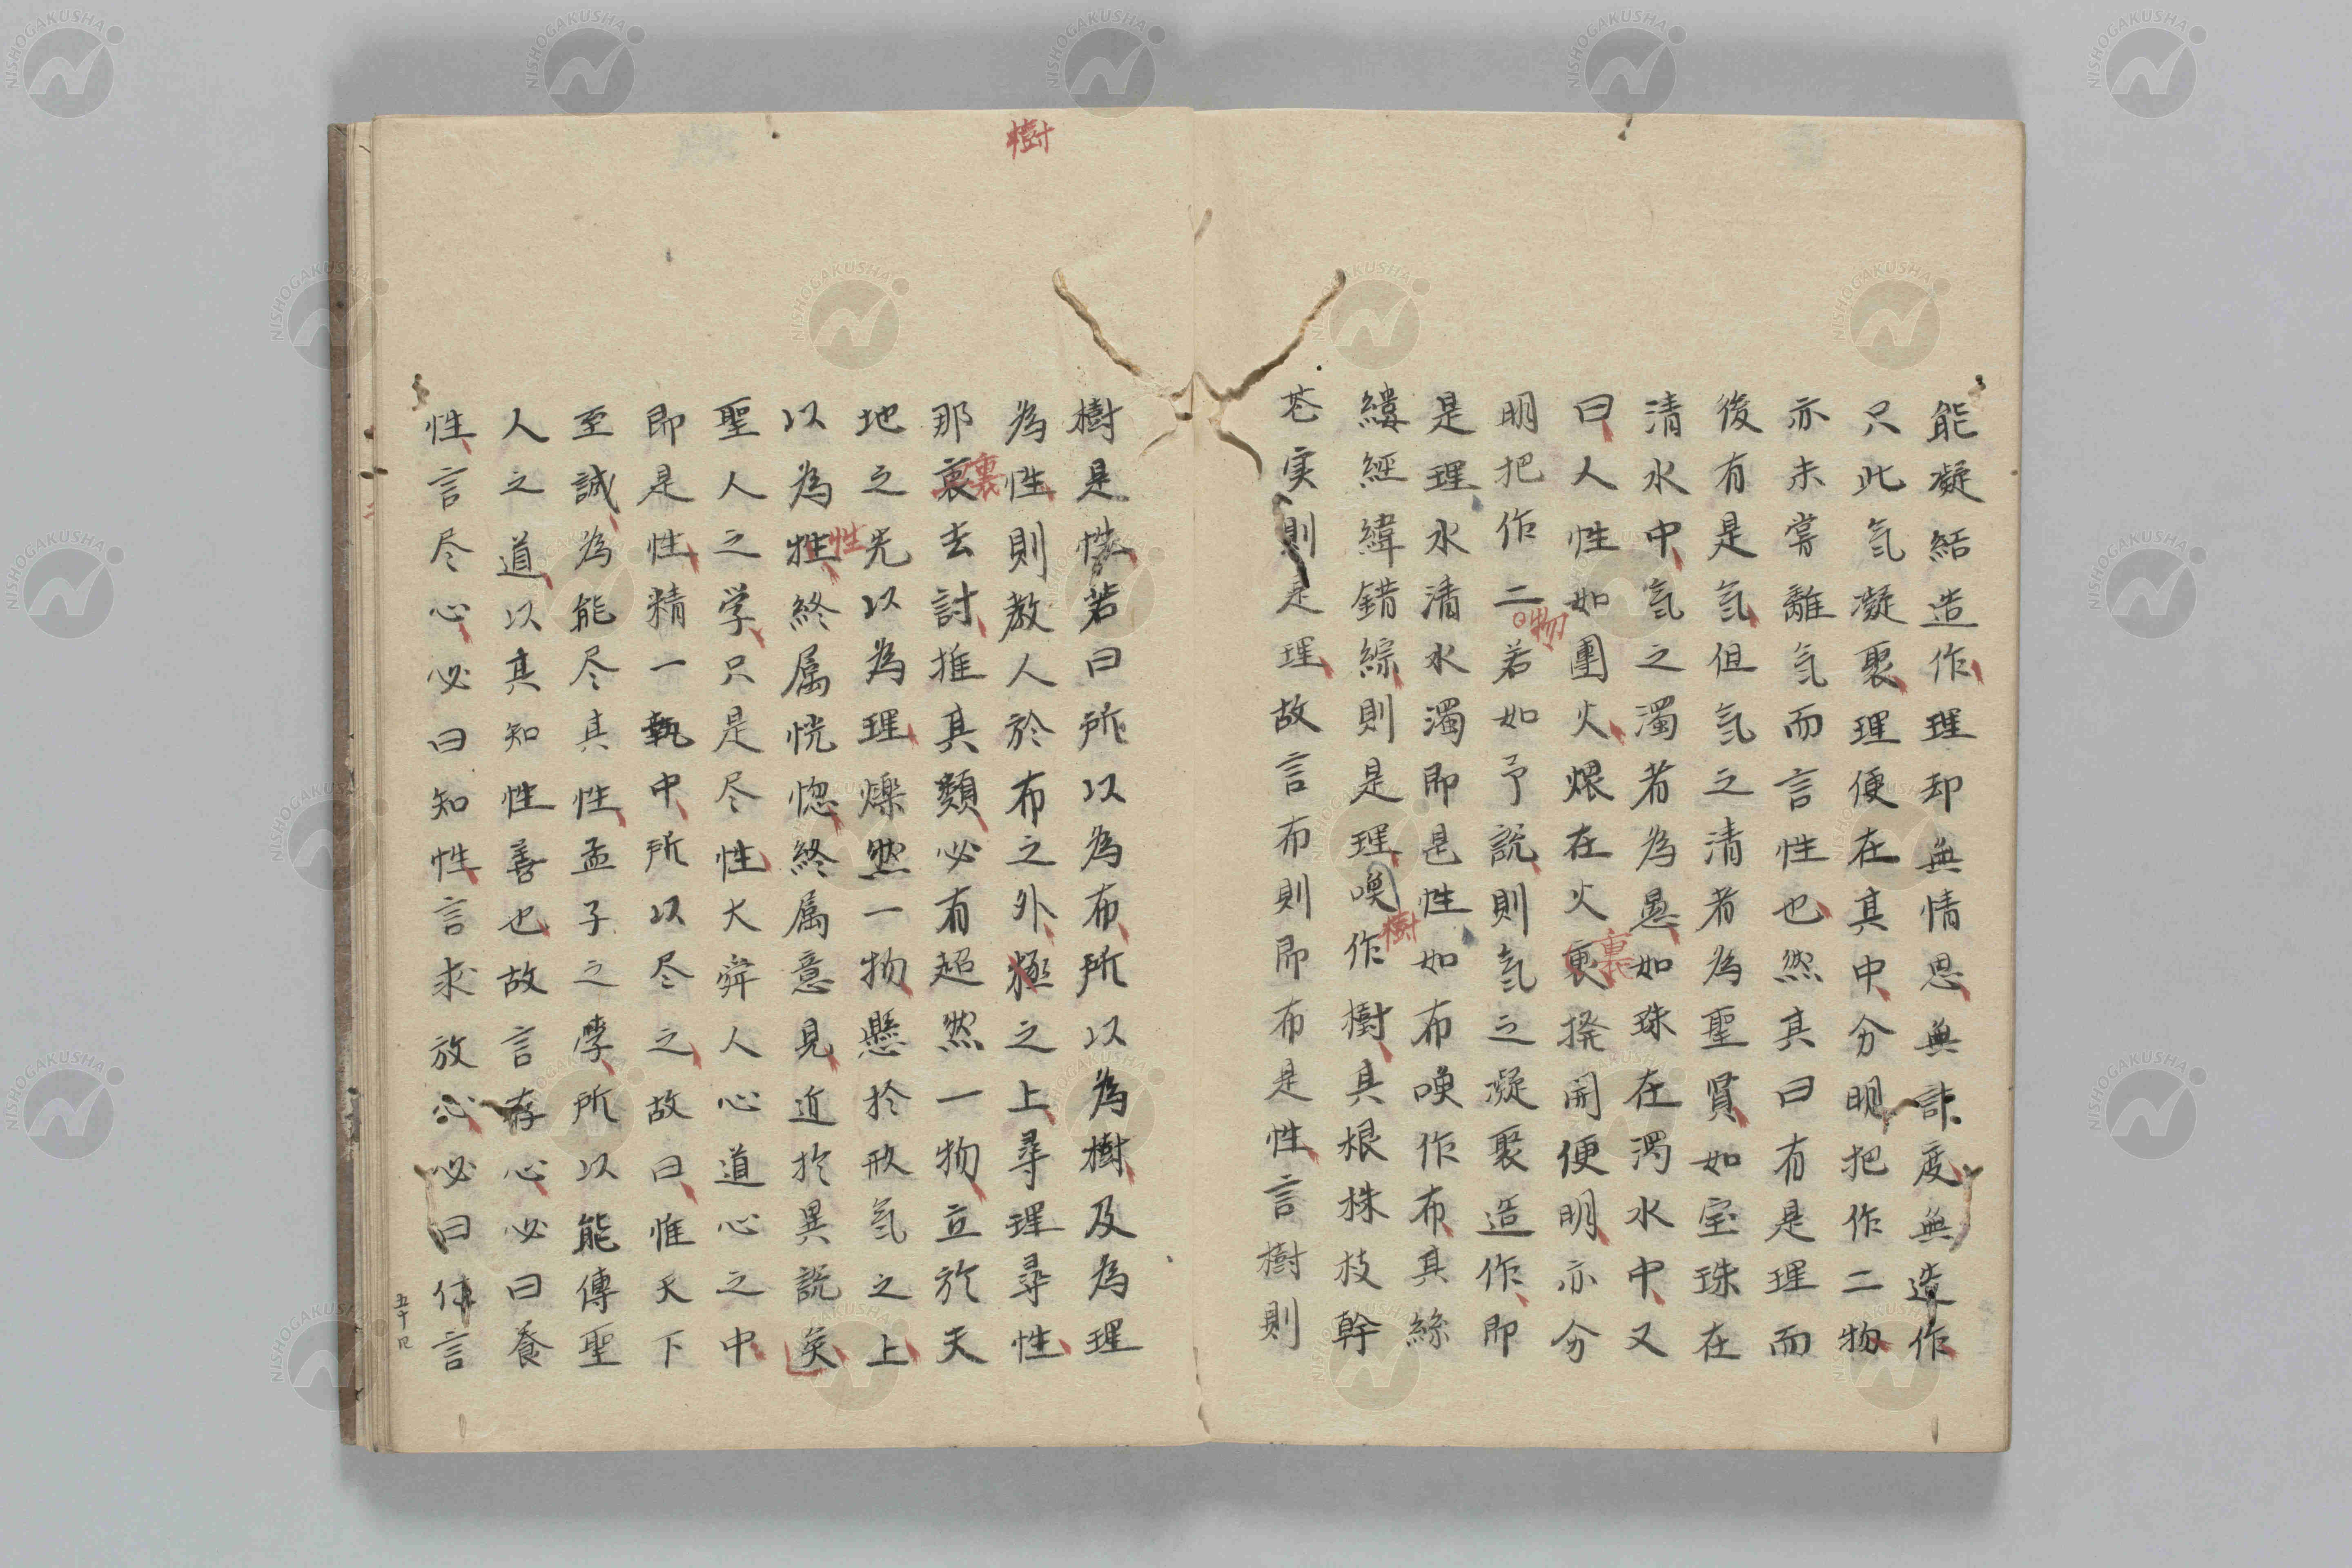 能凝結造作理却無情思無計度無造作
只此氣凝聚理便在其中分明把作二物
亦未嘗離氣而言性也然其曰有是理而
後有是氣但氣之清者為聖賢如宝珠在
清水中氣之濁者為愚如珠在濁水中又
曰人性如團火煨在火裏撥開便明亦分
裏
明把作二若如予説則氣之凝聚造作即
物
是理水清水濁即是性如布喚作布其絲
縷經緯錯綜則是理喚作樹其根株枝幹
樹
花実則是理故言布則即布是性言樹則
樹
樹是性若曰所以為布所以為樹及為理
為性則教人於布之外極之上尋理尋性
那裏去討推其類必有超然一物立於天
裏
地之先以為理爍然一物懸於形氣之上
以為性終属恍惚終属意見近於異説矣
性
聖人之学只是尽性大舜人心道心之中
即是性精一執中所以尽之故曰惟天下
至誠為能尽其性孟子之學所以能傳聖
人之道以其知性善也故言存心必曰養
性言尽心必曰知性言求放心必曰仁言
NISHOGAKUSHA